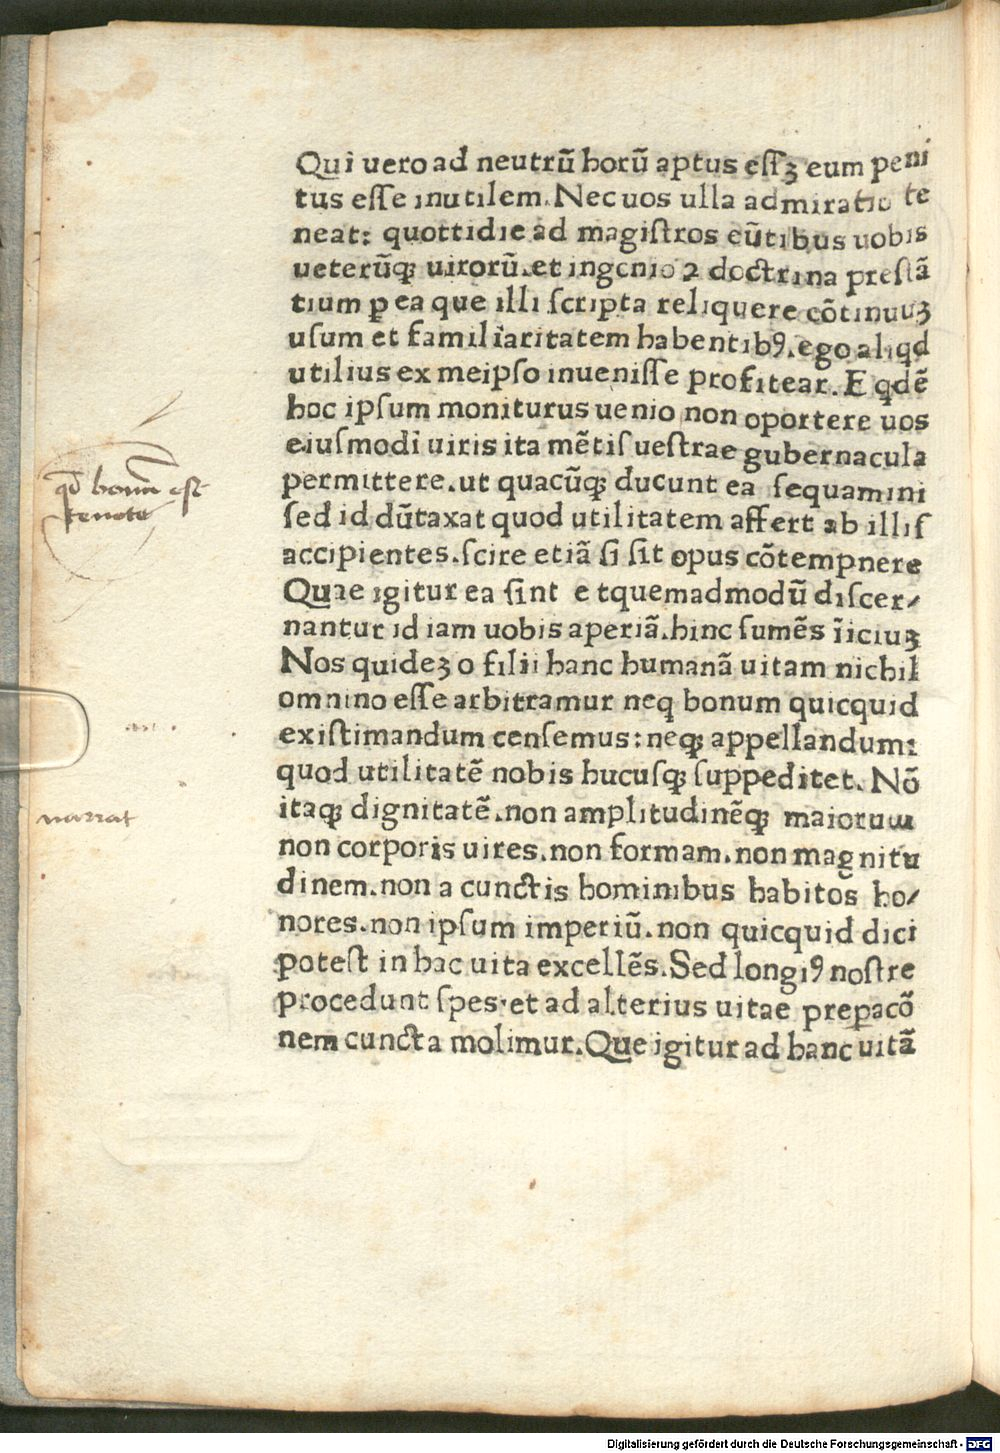 Qui vero ad neutrũ horũ aptus eſſꝫ eum peni
tus eſſe inutilem. Nec uos ulla admiratio te
neat: quottidie ad magiſtros eũtibus uobis
ueterũqꝫ uirorũ. et ingenio ⁊ doctrina preſtã
tium ꝑ ea que illi ſcripta reliquere cõtinuuꝫ
uſum et familiaritatem habentibꝰ. ego aliqd
utilius ex meipſo inueniſſe profitear. E qdẽ
hoc ipſum moniturus uenio non oportere uos
eiuſmodi uiris ita mẽtiſ ueſtrae gubernacula
permittere. ut quacũqꝫ ducunt ea ſequamini
ſed id dũtaxat quod utilitatem affert ab illiſ
accipientes. ſcire etiã ſi ſit opus cõtempnere
Quae igitur ea ſint e tquemadmodũ diſcer⸗
nantur id iam uobis aperiã. hinc ſumẽs ĩiciuꝫ
Nos quideꝫ o filii hanc humanã uitam nichil
omnino eſſe arbitramur neq bonum quicquid
exiſtimandum cenſemus: neqꝫ appellandum:
quod utilitatẽ nobis hucuſqꝫ ſuppeditet. Nõ
itaqꝫ dignitatẽ. non amplitudinẽqꝫ maiorum
non corporis uires. non formam. non magnitu
dinem. non a cunctis hominibus habitos ho⸗
nores. non ipſum imperiũ. non quicquid dici
poteſt in hac uita excellẽs. Sed longiꝰ noſtre
procedunt ſpes. et ad alterius uitae preꝑacõ
nem cuncta molimur. Que igitur ad hanc uitã
qd bonũ est
tenete
narrat
Digitalisierung gefördert durch die Deutsche Forschungsgemeinschaft - DFG